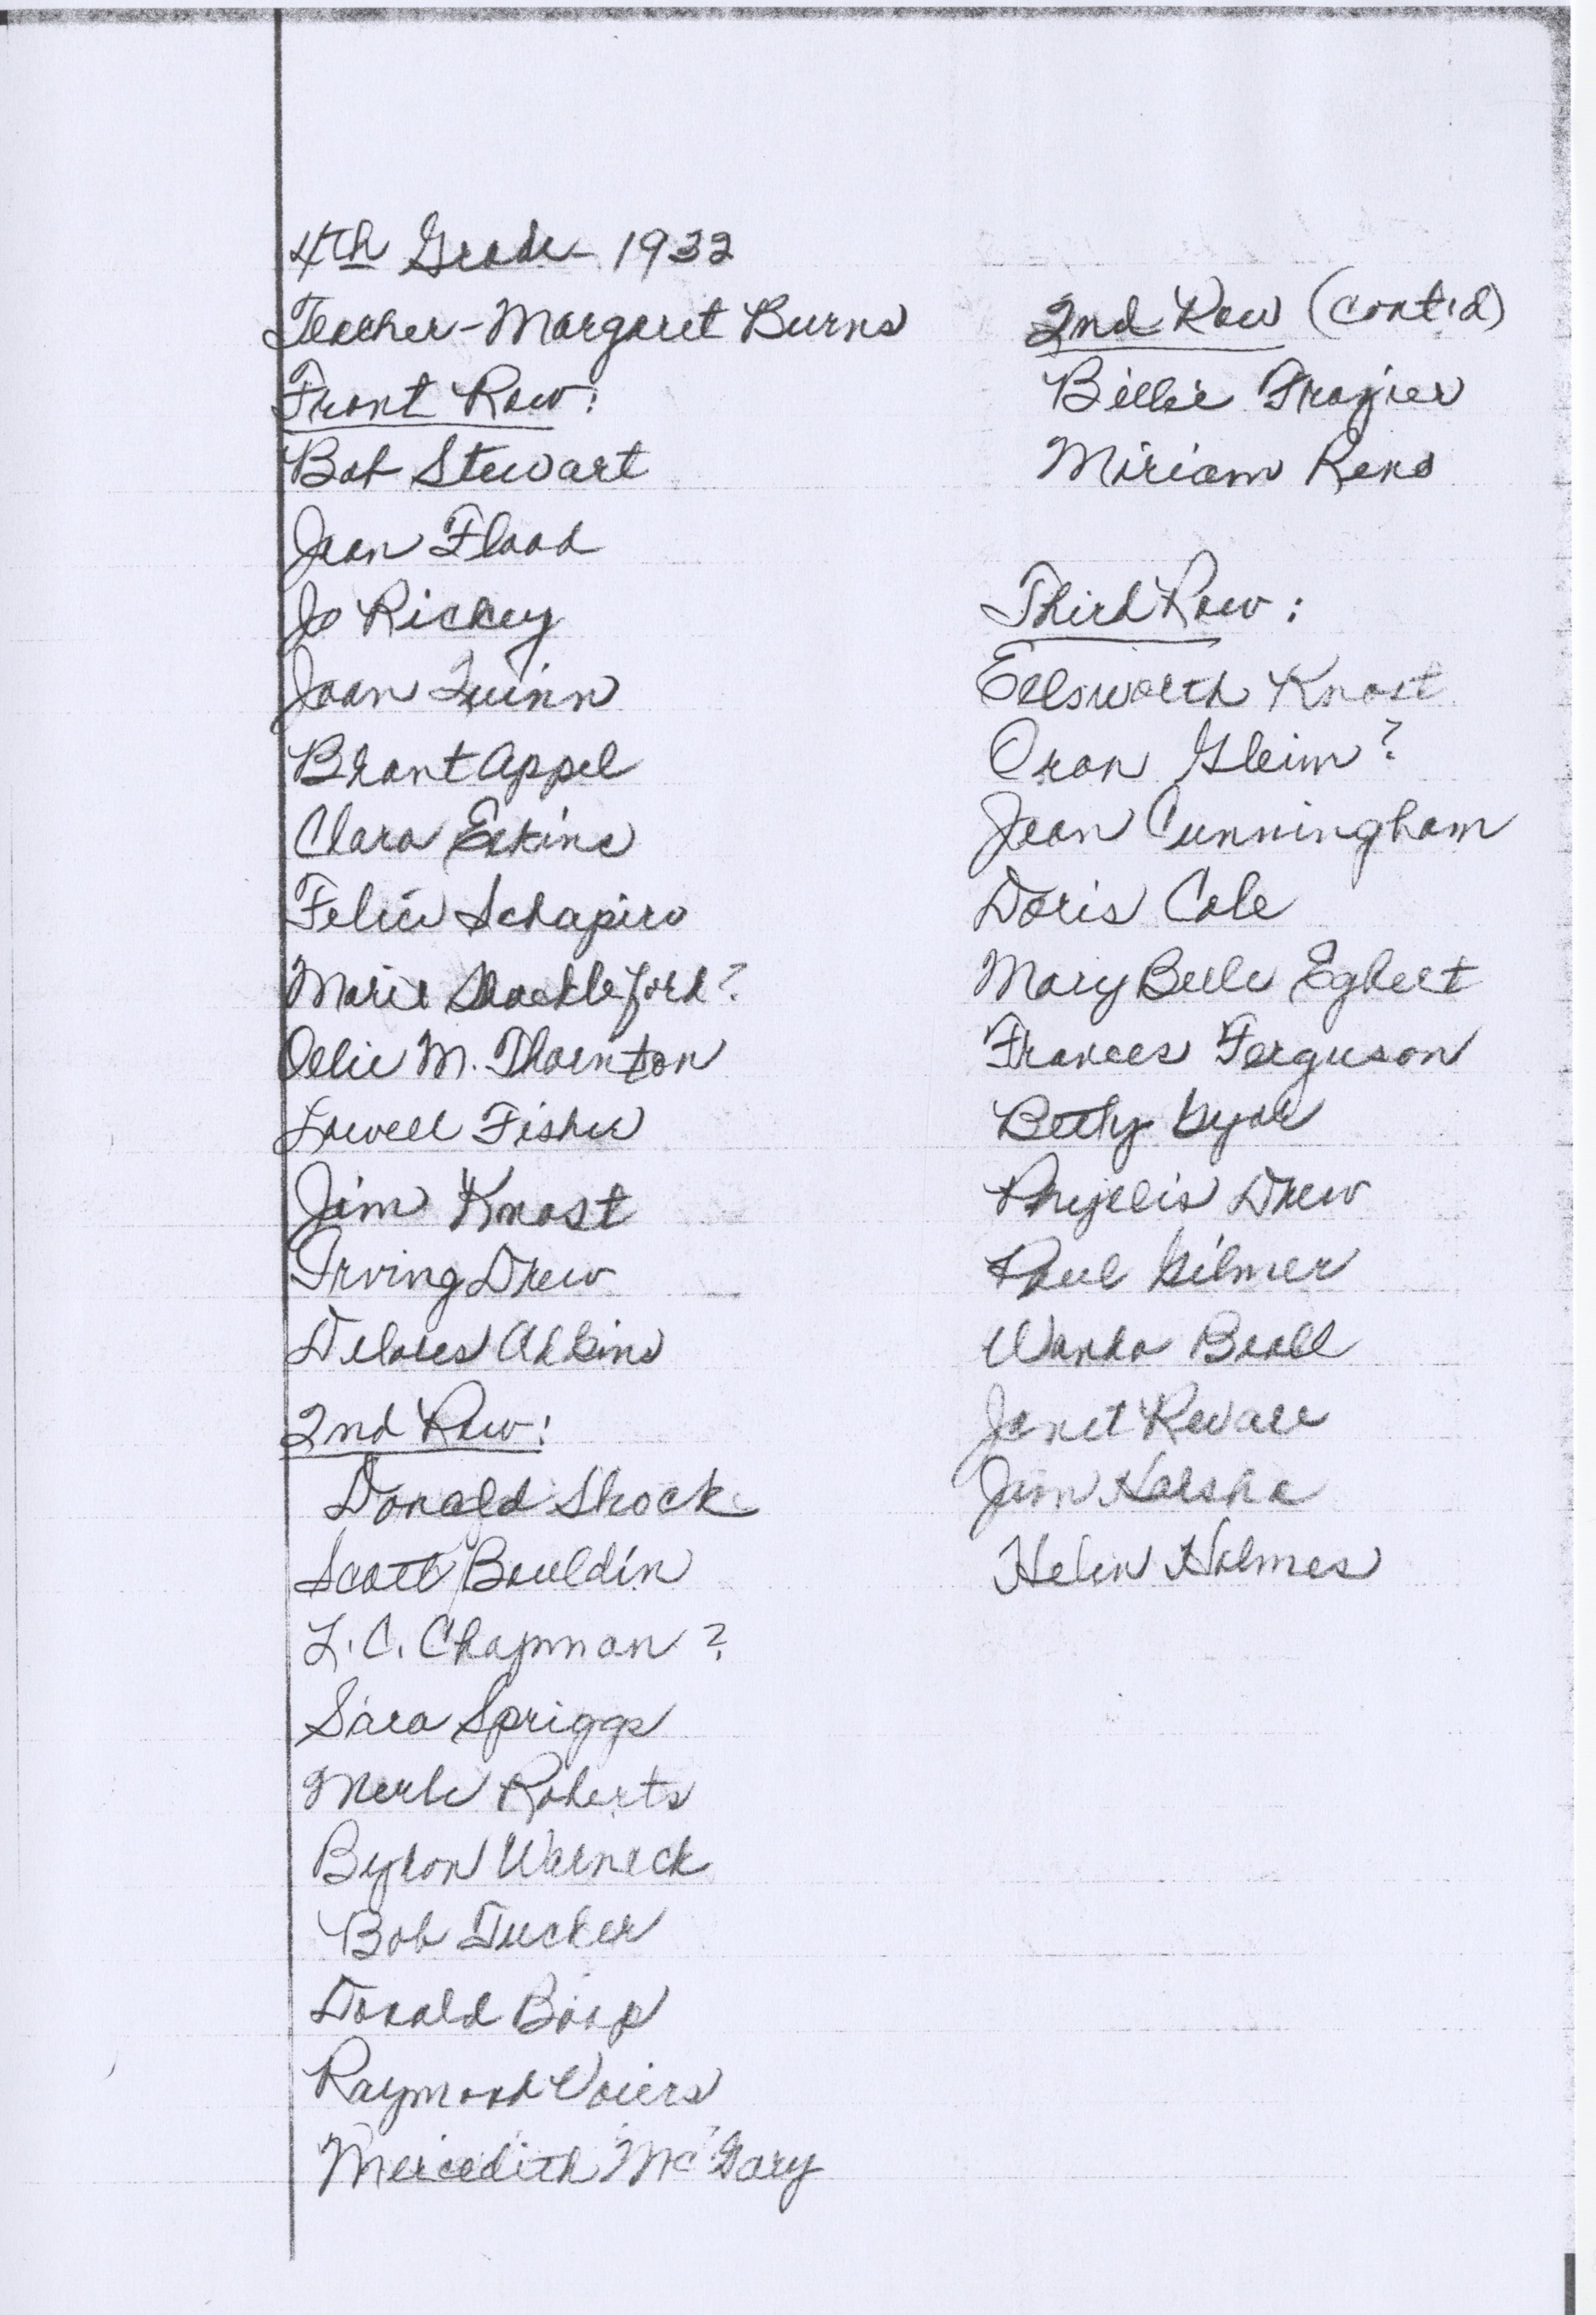 4th Grade - 1932
Teacher - Margaret Burns
Front Row:
Bob Stewart
Jean Flood
Jo Rickey
Joan Quinn
Brant Appel
Clara Eakins
Felice Schapiro
Marie Shackleford?
Ollie M. Thornton
Lowell Fisher
Jim Knost
Irving Drew
Delores Adkins
2nd Row:
Donald Shock
Scott Bouldin
L. C. Chapman ?
Sara Spriggs
Merle Roberts
Byron Warneck
Bob Tucker
Donald Boop
Raymond Voiers
Meredith McGary
2nd Row (cont'd)
Billie Frazier
Miriam Reno
Third Row:
Ellsworth Knost
Oran Gleim?
Jean Cunningham
Doris Cole
Mary Belle Egbert
Frances Ferguson
Betty
Phyllis Drew
Paul Gilmer
Wanda Beall
Janet Revare
Jim Harsha
Helen Holmes